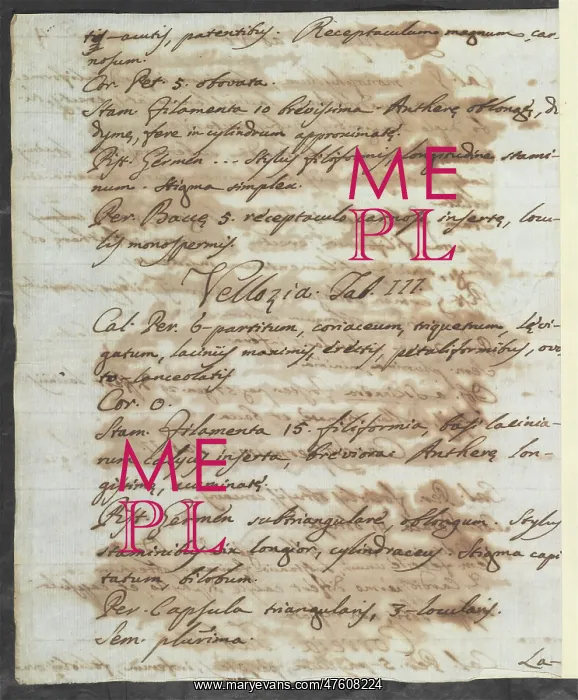 tis acutis, patentibus. Receptaculum magnum, car-
nosum.
Cor. Pet. 5. obovata.
Stam. filamenta 10 brevissima. Antheræ oblongæ, di-
dymę, fere in cylindrum approximatę.
Pist. Germen ... Stylus filiformis longitudine stami-
num. Stigma simplex.
Per. Baccę 5. receptaculo carnoso insertę, locu-
lis monospermis.
Vellozia. Tab. III.
Cal. Per. 6-partitum, coriaceum, triquetrum, lęvi-
gatum, laciniis maximis, erectis, petaliformibus, ova
to lanceolatis
Cor. 0.
Stam. filamenta 15. filiformia, basi lacinia-
rum calycis inserta, breviora. Antherę lon-
gissimę, acuminatę.
Pist. Germen subtriangulare, oblongum. Stylus
staminibus vix longior, cylindraceus. Stigma capi
tatum, bilobum.
Per. Capsula triangularis, 3-locularis.
Sem. plurima.
La-
ME
PL
ME
PL
www.maryevans.com/47608224